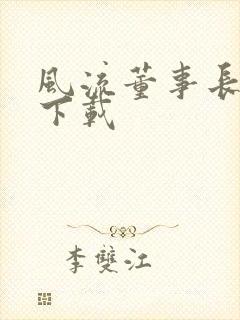 風流董事長
下載
李雙江